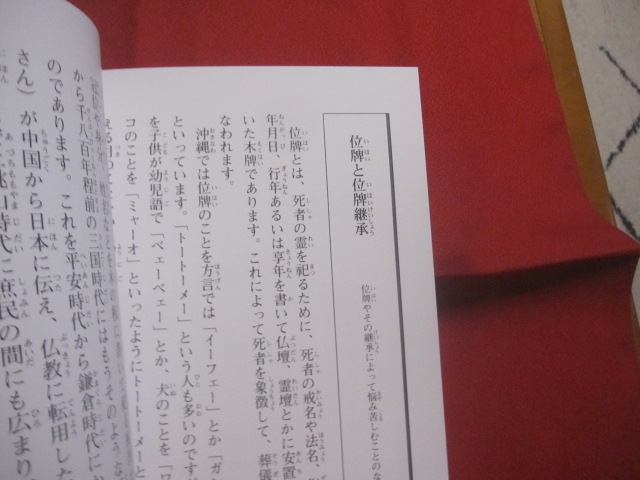 位牌と位牌継承
位牌やその継承によって悩み苦しむことのな
位牌とは、死者の霊を祀るために、死者の戒名や法名、
年月日、行年あるいは享年を書いて仏壇、霊壇とかに安置
いた木牌であります。これによって死者を象徴して、葬儀
なわれます。
沖縄では位牌のことを方言では「イーフェー」とか「ガ
といっています。「トートーメー」という人も多いのです
を子供が幼児語で「ベェーベェー」とか、犬のことを「ワ
コのことを「ミャーオ」といったようにトートーメーと
から千八百年程前の三国時代にはもうそのような
のであります。これを平安時代から鎌倉時代にお
さん）が中国から日本に伝え、仏教に転用した
山時代に庶民の間にも広まり